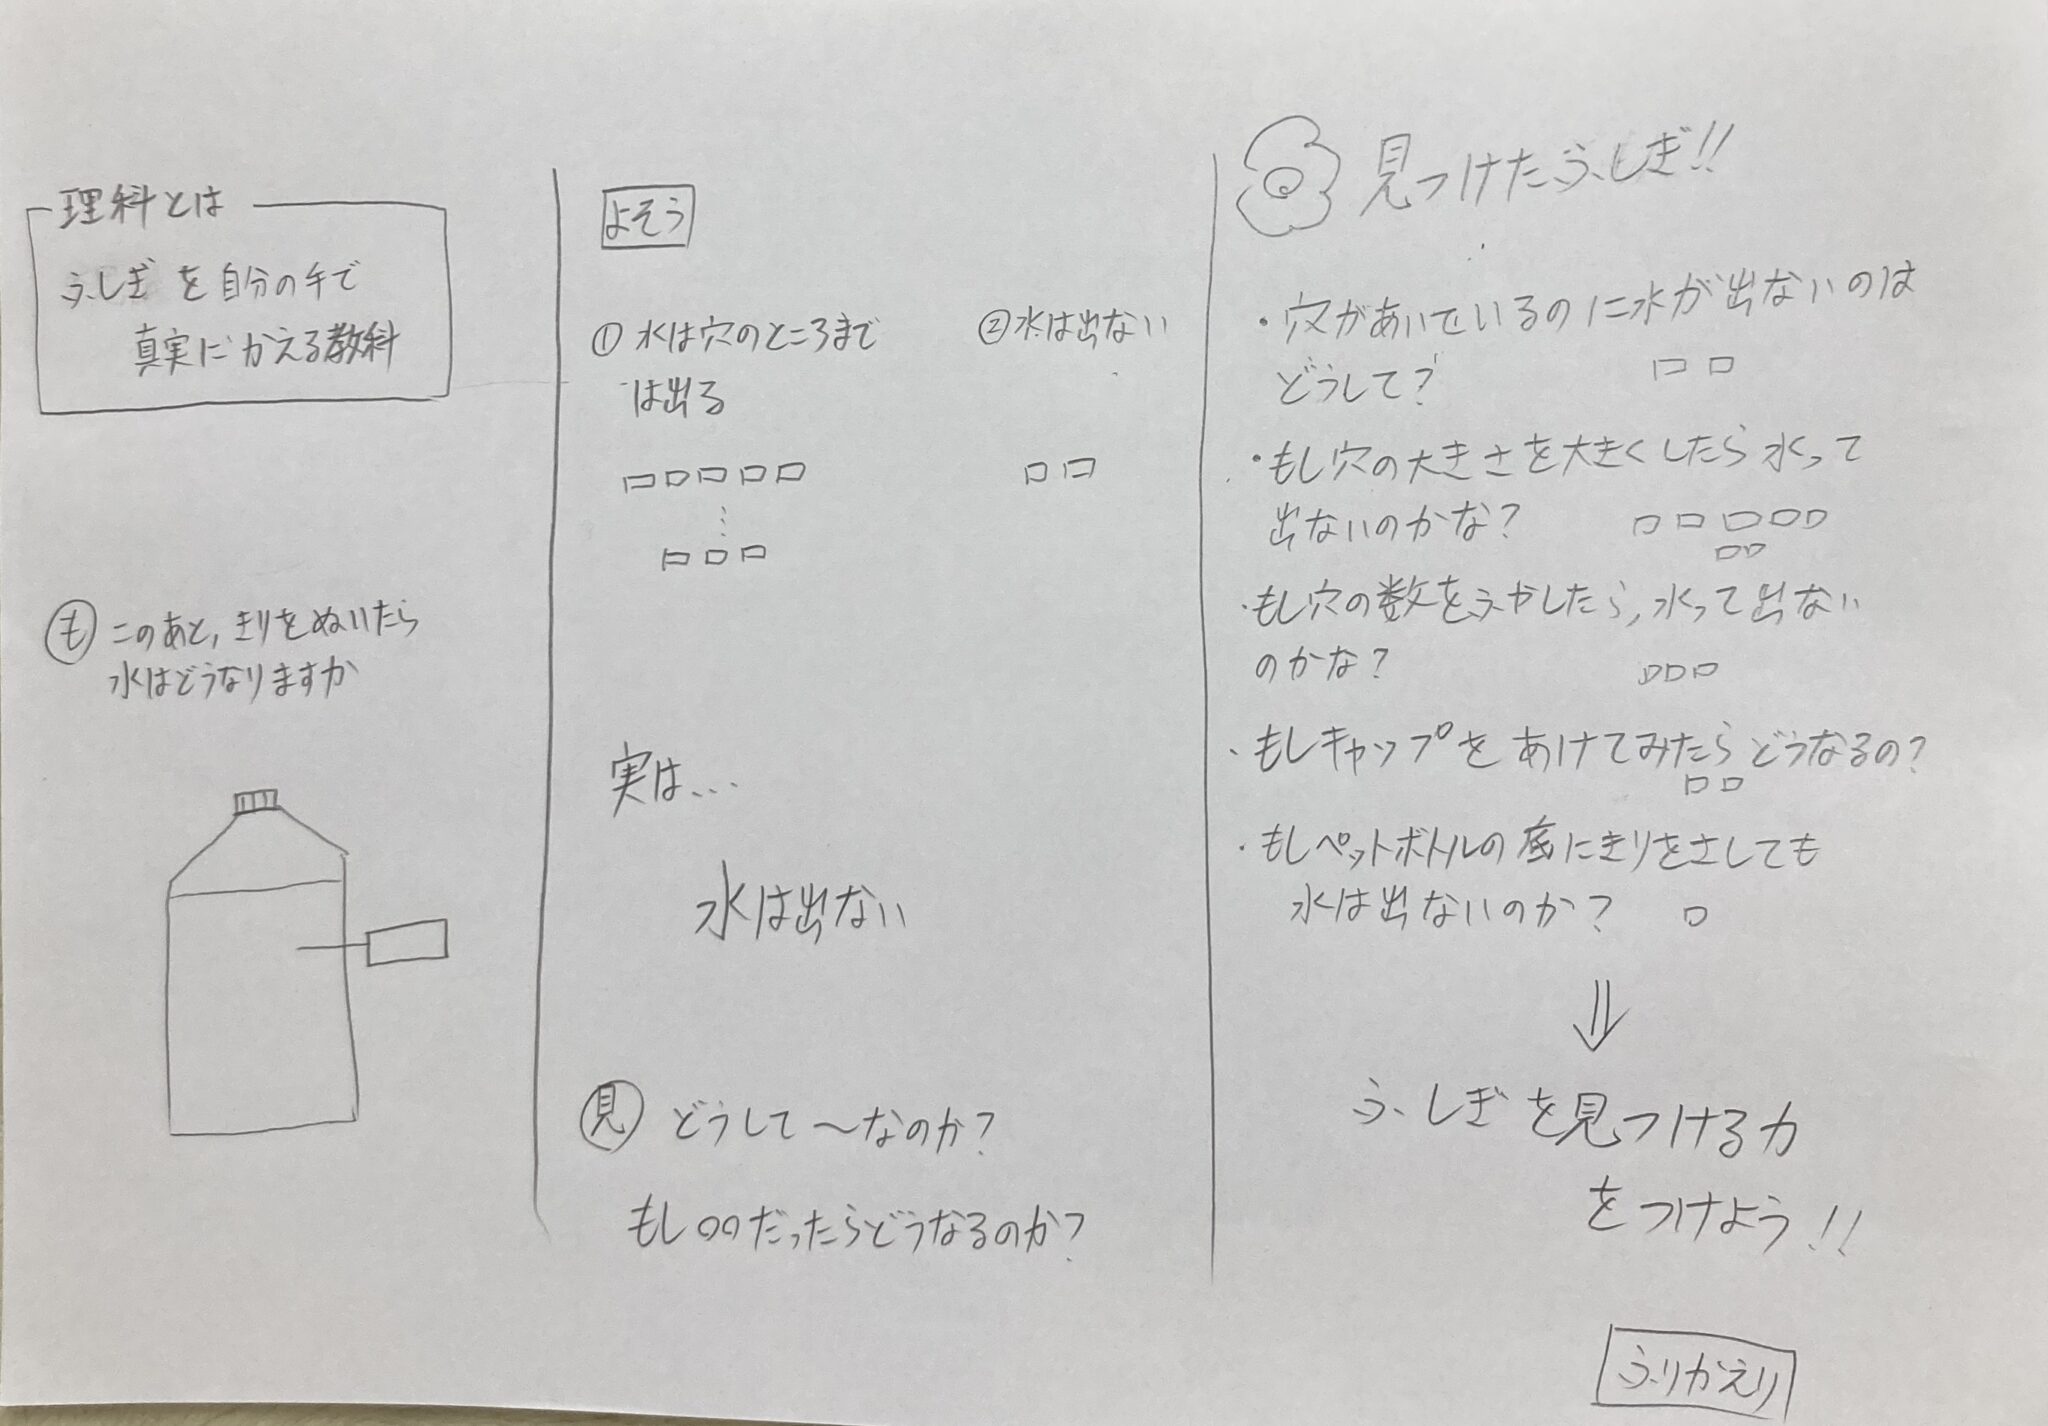 理科とは
ふしぎを自分の手で
真実にかえる教科
も このあと,きりをぬいたら
水はどうなりますか
よそう
① 水は穴のところまで
は出る
② 水は出ない
実は…
水は出ない
見 どうして〜なのか?
もし○○だったらどうなるのか?
見つけたふしぎ!!
・穴があいているのに水が出ないのは
どうして?
・もし穴の大きさを大きくしたら水って
出ないのかな?
・もし穴の数をふやしたら,水って出ない
のかな?
・もしキャップをあけてみたらどうなるの?
・もしペットボトルの底にきりをさしても
水は出ないのか?
⇓
ふしぎを見つける力
をつけよう!!
ふりかえり